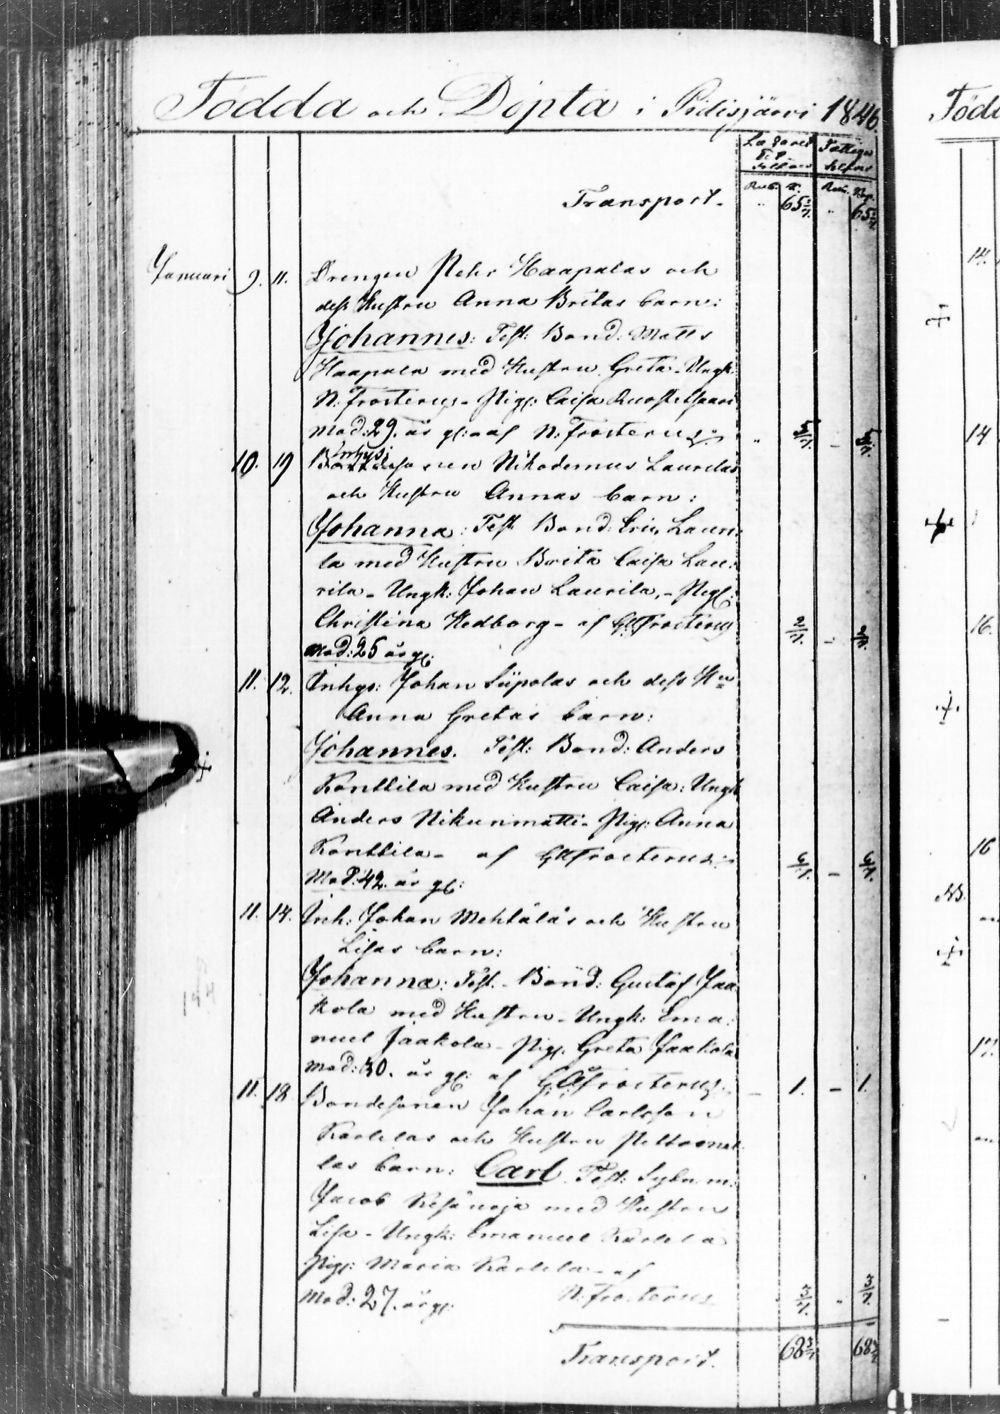 Födda och Döpta i Pidisjärvi 1846.
Född
Lazaret
Fattiga
Rub. K. Rub. Kop.
Transport. " 65 5/7. " 65 5/7.
Januari 9. 11. Drengen Pehr Haapalas och
dess Hustru Anna Britas barn:
Johannes: Test: Bond: Matts
Haapala med Hustru Greta - Ungk:
N. Frosterus - Pig: Caisa
Mod: 29. år gl: af N: Frosterus
5/7. - 5/7.
10. 19 Inhys:
Nikodemus Laurilas
och Hustru Annas barn:
Johanna: Test Bond: Eric Lauri
la med Hustru Brita Caisa Lau-
rila - Ungk: Johan Laurila, - Pig:
Christina Hedborg - af Frosterus
2/7. - 2/7.
Mod: 25 år gl:
11. 12. Inhys: Johan Siipolas och dess Hu
Anna Gretas barn:
Johannes. Test: Bond: Anders
Konttila med Hustru Caisa: Ungk
Anders Nikunmatti - Pig: Anna
Konttila - af Frosterus
6/7. - 6/7.
Mod: 42. år gl:
11. 14. Inh: Johan Mehtälä's och Hustru
Lisas barn:
Johanna: Test. Bond: Gustaf Jaa
kola med Hustru - Ungk: Ema
nuel Jaakola - Pig. Greta Jaakola
Mod: 30. år gl: af Frosterus
- 1. - 1.
144
11. 18 Bondesonen Johan Carlsson
Karlelas och Hustru
las barn: Carl Test: m:
Jacob med Hustru
Lisa - Ungk: Emanuel Karlela
Pig: Maria Karlela - af
Mod: 27. år gl: N: Frosterus
3/7. - 3/7.
Transport. 68 3/7. 68 3/7
14.
14
16.
16
NB.
17.